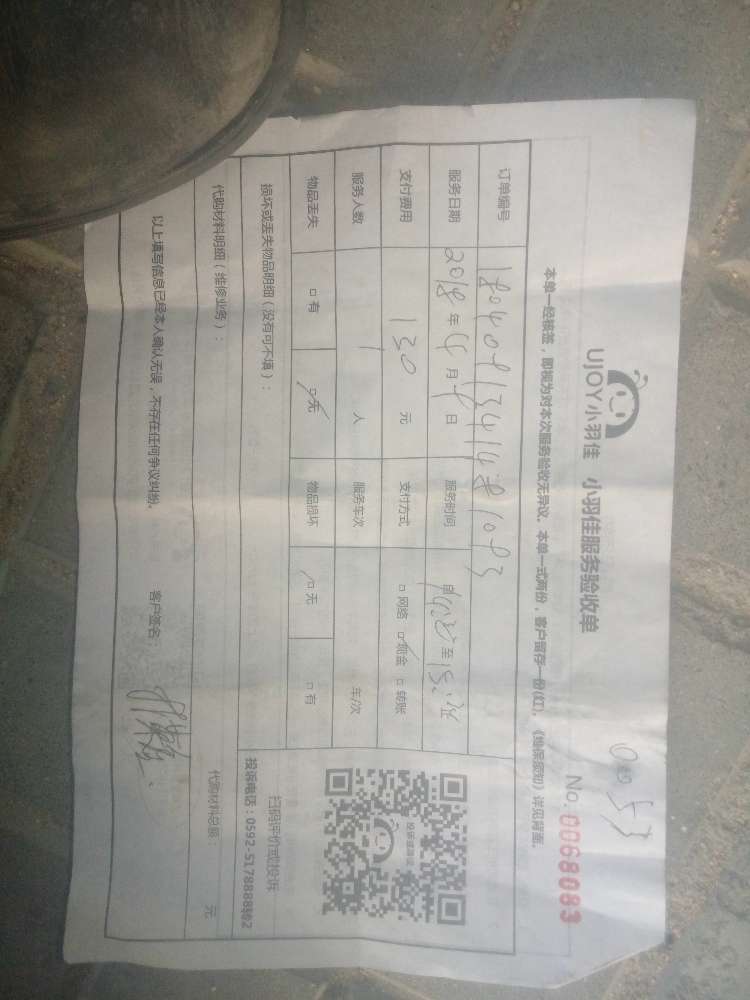 UJOY小羽佳 小羽佳服务验收单
No. 0068083
本单一经核签，即视为对本次服务验收无异议。本单一式两份，客户留存一份(红)，《维保须知》详见背面。
订单编号
服务日期 2018 年 4 月 日 服务时间 自 至
支付费用 130 元 支付方式 □ 网络 □ 现金 □ 转账
服务人数 1 人 服务车次 车/次
物品丢失 □ 有 □ 无 物品损坏 □ 无 □ 有
损坏或丢失物品明细（没有可不填）：
扫码评价或投诉
投诉电话：0592-5178888转2
代购材料明细（维修业务）： 代购材料总额： 元
以上填写信息已经本人确认无误，不存在任何争议纠纷。 客户签名：